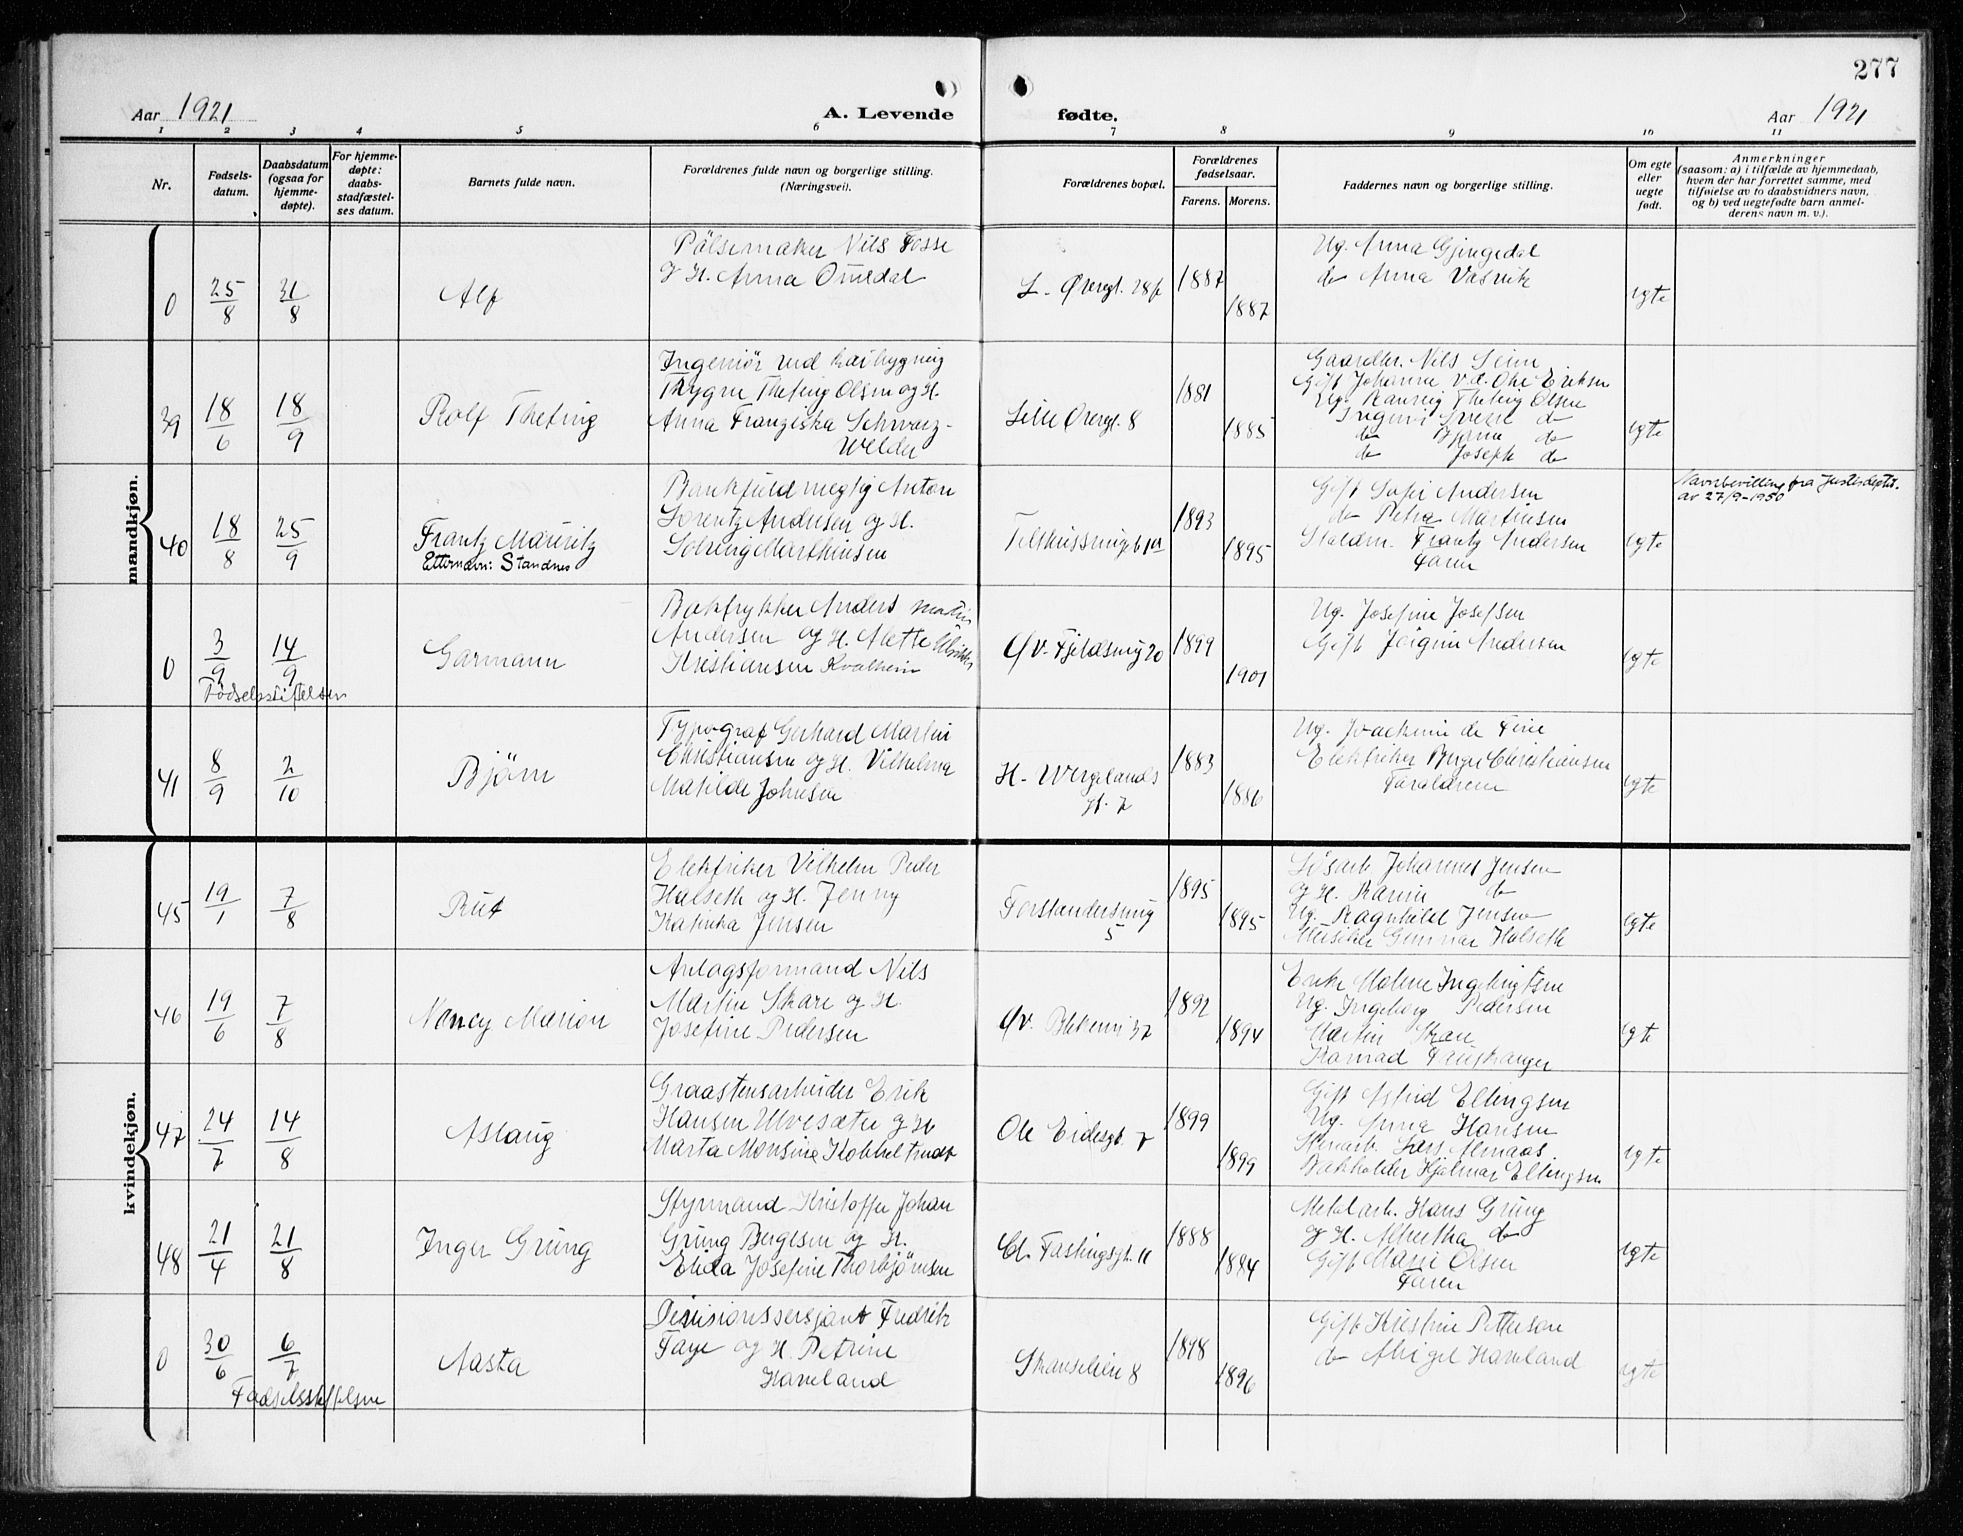 277
Aar 1921
A. Levende fødte.
Aar 1921
1 2 3 4 5 6 7 8 9 10 11
Nr.
Fødsels-
datum.
Daabsdatum
(ogsaa for
hjemme-
døpte).
For hjemme-
døpte:
daabs-
stadfæstel-
ses datum.
Barnets fulde navn.
Forældrenes fulde navn og borgerlige stilling.
(Næringsvei).
Forældrenes bopæl.
Forældrenes
fødselsaar.
Farens. Morens.
Faddernes navn og borgerlige stilling.
Om egte
eller
uegte
født.
Anmerkninger
(saasom: a) i tilfælde av hjemmedaab,
hvem der har forrettet samme, med
tilføielse av to daabsvidners navn,
og b) ved uegtefødte barn anmel-
derens navn m. v.).
mandkjøn.
0
25/8
31/8
Alf
Pölsemaker Nils Fosse
og H. Anna Omdal
L. Øvregt. 28
1887
1887
Ug. Anna Gjengedal
do Anna Vasvik
egte
39
18/6
18/9
Rolf Theting
Ingeniör ved havbygning
Thygre Theting Olsen og H.
Anna Franziska Schwarz-
Welder
Lille Øvregt. 8
1881
1885
Gaardbr. Nils Seim
Gift Johanne v.d. Ohe Eriksen
Ug. Ranveig Theting Olsen
Ingeniör Sverre do
do Bjarne do
do Joseph do
egte
40
18/8
25/9
Frantz Mauritz
Etternavn: Standnes
Bankfuldmegtig Anton
Lorentz Andersen og H.
Solveig Marthinsen
1893
1895
Gift Sofi Andersen
do Petra Martinsen
Frantz Andersen
Faren
egte
Navnbevilling fra Justisdeptet.
av 27/9-1950
0
3/9
14/9
Fødselsstiftelsen
Garmann
Boktrykker Anders Martin
Andersen og H. Alette Ulrikke
Kristiansen Kvalheim
Øv. Fjeldsmug 20
1899
1901
Ug. Josefine Josefsen
Gift Jörgine Andersen
egte
41
8/9
2/10
Bjørn
Typograf Gerhard Martin
Christiansen og H. Vilhelma
Matilde Johnsen
H. Wergelands
gt. 7
1883
1886
Ug. Joachime de Fine
Elektriker Birger Christiansen
Forældrene
egte
kvindekjøn.
45
19/1
7/8
Rut
Elektriker Vilhelm Peder
Halseth og H. Jenny
Katinka Jensen
Forstandersmug
5
1895
1895
Lösarb. Johannes Jensen
og H. Karine do
Ug. Ragnhild Jensen
Musiker Gunnar Halseth
egte
46
19/6
7/8
Nancy Marion
Anlagsformand Nils
Martin Skare og H.
Josefine Pedersen
Øv. Blekevei 37
1892
1894
Enke Malene Ingebrigtsen
Ug. Ingeborg Pedersen
Martin Skare
Konrad
egte
47
24/7
14/8
Aslaug
Graastensarbeider Erik
Hansen Ulvesæter og H.
Marta Monsine Kobbeltvedt
Ole Eidesgt. 7
1899
1899
Gift Astrid Ellingsen
Ug. Anna Hansen
Stenarb. Lars Almaas
Bokholder Hjalmar Ellingsen
egte
48
21/4
21/8
Inger Grung
Styrmand Kristoffer Johan
Grung Bergesen og H.
Elida Josefine Thorbjørnsen
Cl. Fastingsgt. 11
1888
1884
Mek.arb. Hans Grung
og H. Albertha do
Gift Marie Olsen
Faren
egte
0
30/6
6/7
Fødselsstiftelsen
Aasta
Divisionssersjant Fredrik
Faye og H. Petrine
Haveland
Skanselien 8
1898
1896
Gift Kristine Petterson
do Abigel Haveland
egte